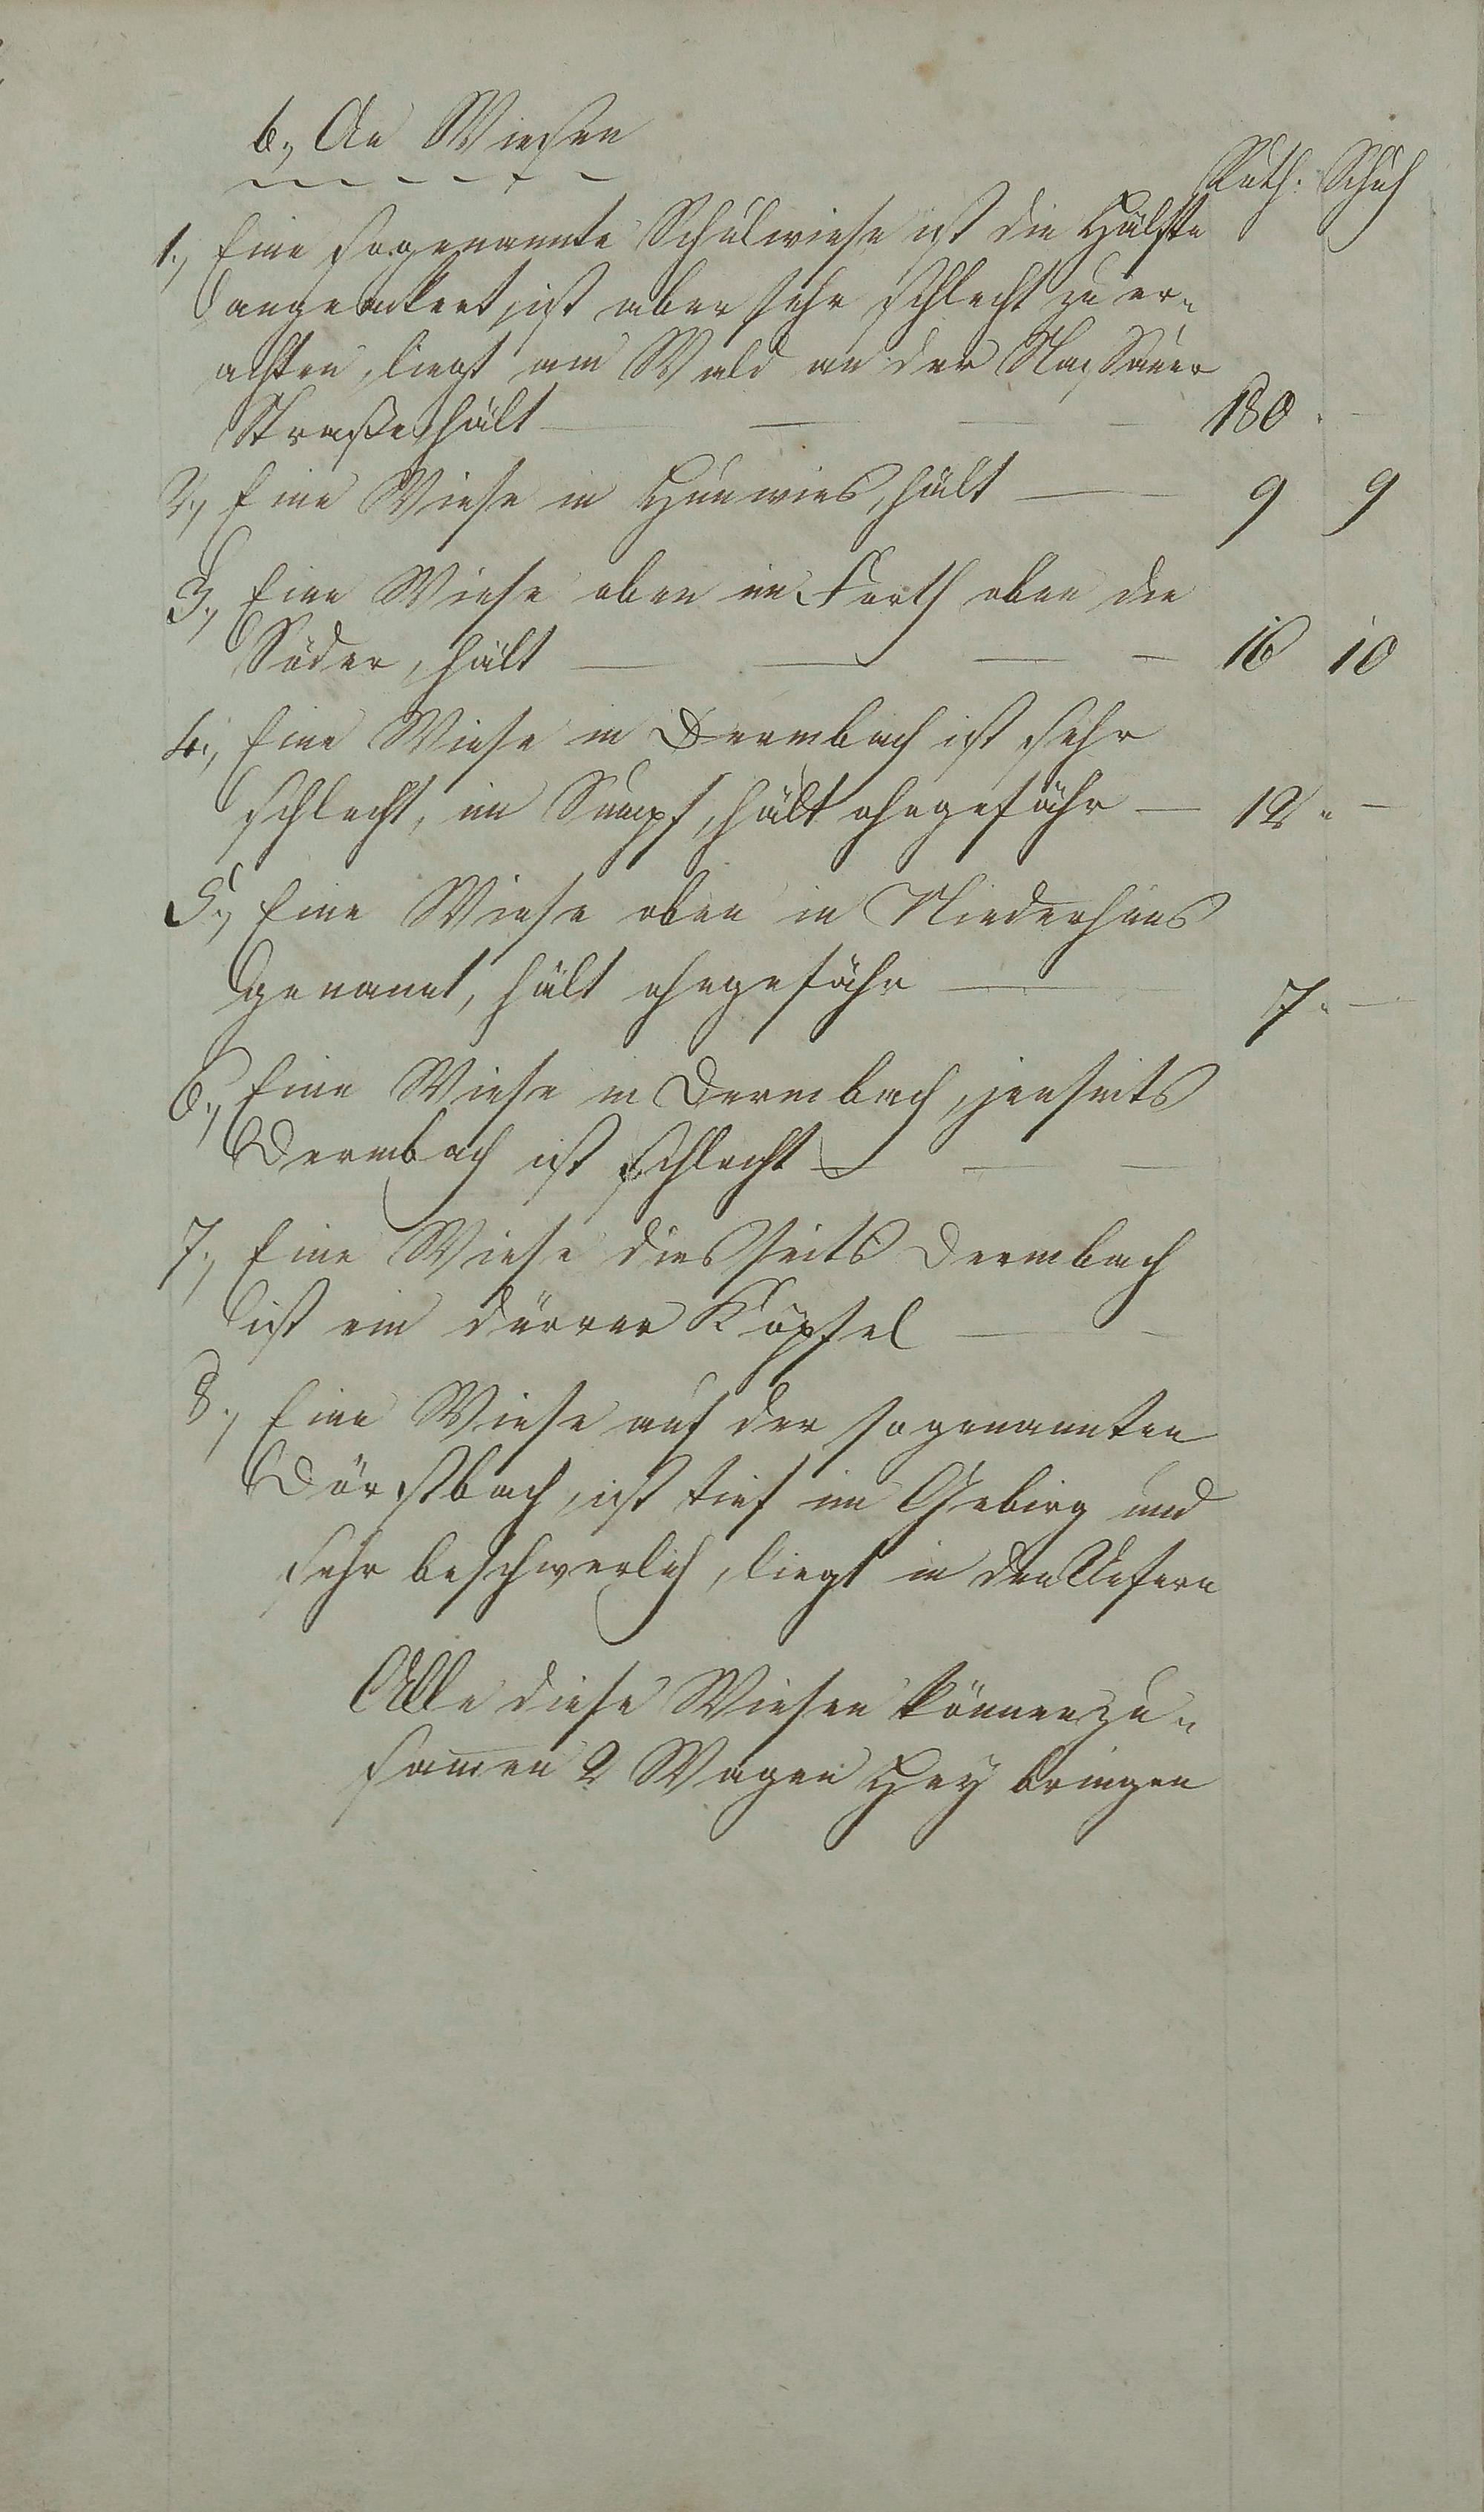 b., An Wiesen
Ruth. Schuh
1., Eine sogenannte Schulwiese ist die Hälfte
angerckert, ist aber sehr schlecht zu er-
achten, liegt am Wald an der Nassauer
Straße, hält — — — — 180 . —
2., Eine Wiese in Hunwies, hält — — 9 9
3., Eine Wiese oben im Forth oben die
Söder, hält — — — — 16 10
4., Eine Wiese in Dermbach ist sehr
schlecht, im Sumpf, hält ohngefähr — 12 " —
5., Eine Wiese oben in Niederhaus
genannt, hält ohngefähr — — 7 " —
6., Eine Wiese in Dermbach, jenseits
Dermbach ist schlecht — — —
7., Eine Wiese diesseits Dermbach
ist ein dürrer Köpfel — —
8., Eine Wiese auf der sogenannten
Dörstbach, ist tief im Gebirg und
sehr beschwerlich, liegt in den Ufern
Alle diese Wiesen können zu-
samen 2 Wagen Hey bringen